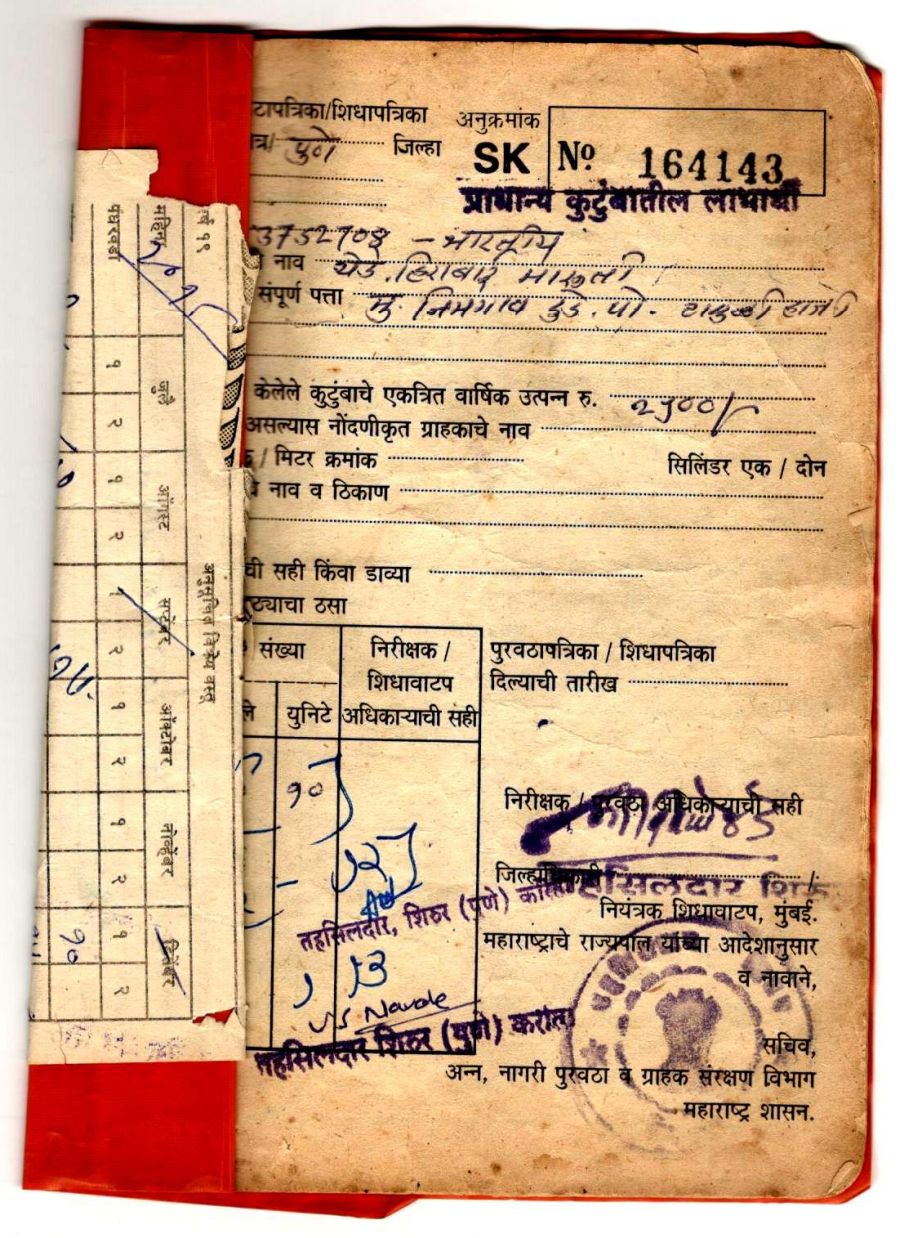 टापत्रिका/शिधापत्रिका
अनुक्रमांक
त्र/ पुणे जिल्हा
SK No 164143
प्राधान्य कुटुंबातील लाभार्थी
भारतीय
नाव येडे हिराबाई मारुती
संपूर्ण पत्ता मु. निमगाव दुडे. पो. हाजी
केलेले कुटुंबाचे एकत्रित वार्षिक उत्पन्न रु. २५००/-
असल्यास नोंदणीकृत ग्राहकाचे नाव
/ मिटर क्रमांक सिलिंडर एक / दोन
नाव व ठिकाण
ची सही किंवा डाव्या
ठ्याचा ठसा
संख्या
निरीक्षक /
शिधावाटप
अधिकाऱ्याची सही
युनिटे
१०
पुरवठापत्रिका / शिधापत्रिका
दिल्याची तारीख
निरीक्षक / पुरवठा अधिकाऱ्याची सही
जिल्हाधिकारी
तहसिलदार शिरूर
नियंत्रक शिधावाटप, मुंबई.
महाराष्ट्राचे राज्यपाल यांच्या आदेशानुसार
व नावाने,
तहसिलदार, शिरुर (पुणे) करीता
Navale
तहसिलदार शिरुर (पुणे) करीता
सचिव,
अन्न, नागरी पुरवठा व ग्राहक संरक्षण विभाग
महाराष्ट्र शासन.
अनुसूचित विक्रेय वस्तू
महिना
पंधरवडा
जुलै
१
२
ऑगस्ट
१
२
सप्टेंबर
१
२
ऑक्टोबर
१
२
नोव्हेंबर
१
२
डिसेंबर
१
२